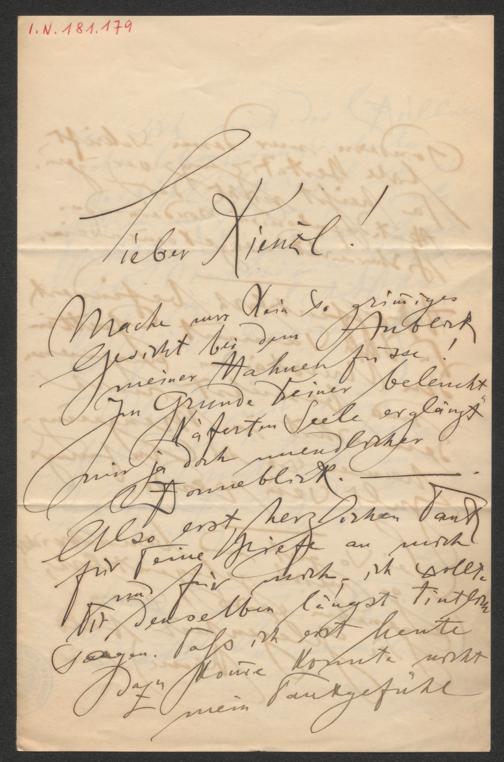 I.N. 181.179
Lieber Kienzl!
Mache nur kein so grimmiges
Gesicht bei dem Anblick
meiner Hahnenfüsse!
Im Grunde Deiner beleucht-
Käferten Seele erglänzt
mir ja doch unendlicher
Sonneblick. —
Also erst herzlichen Dank
für Deine Briefe an mich
und für mich, ich wollte
Dir denselben längst
sagen. Daß ich erst heute
dazu komme konnte nicht
mein Dankgefühl